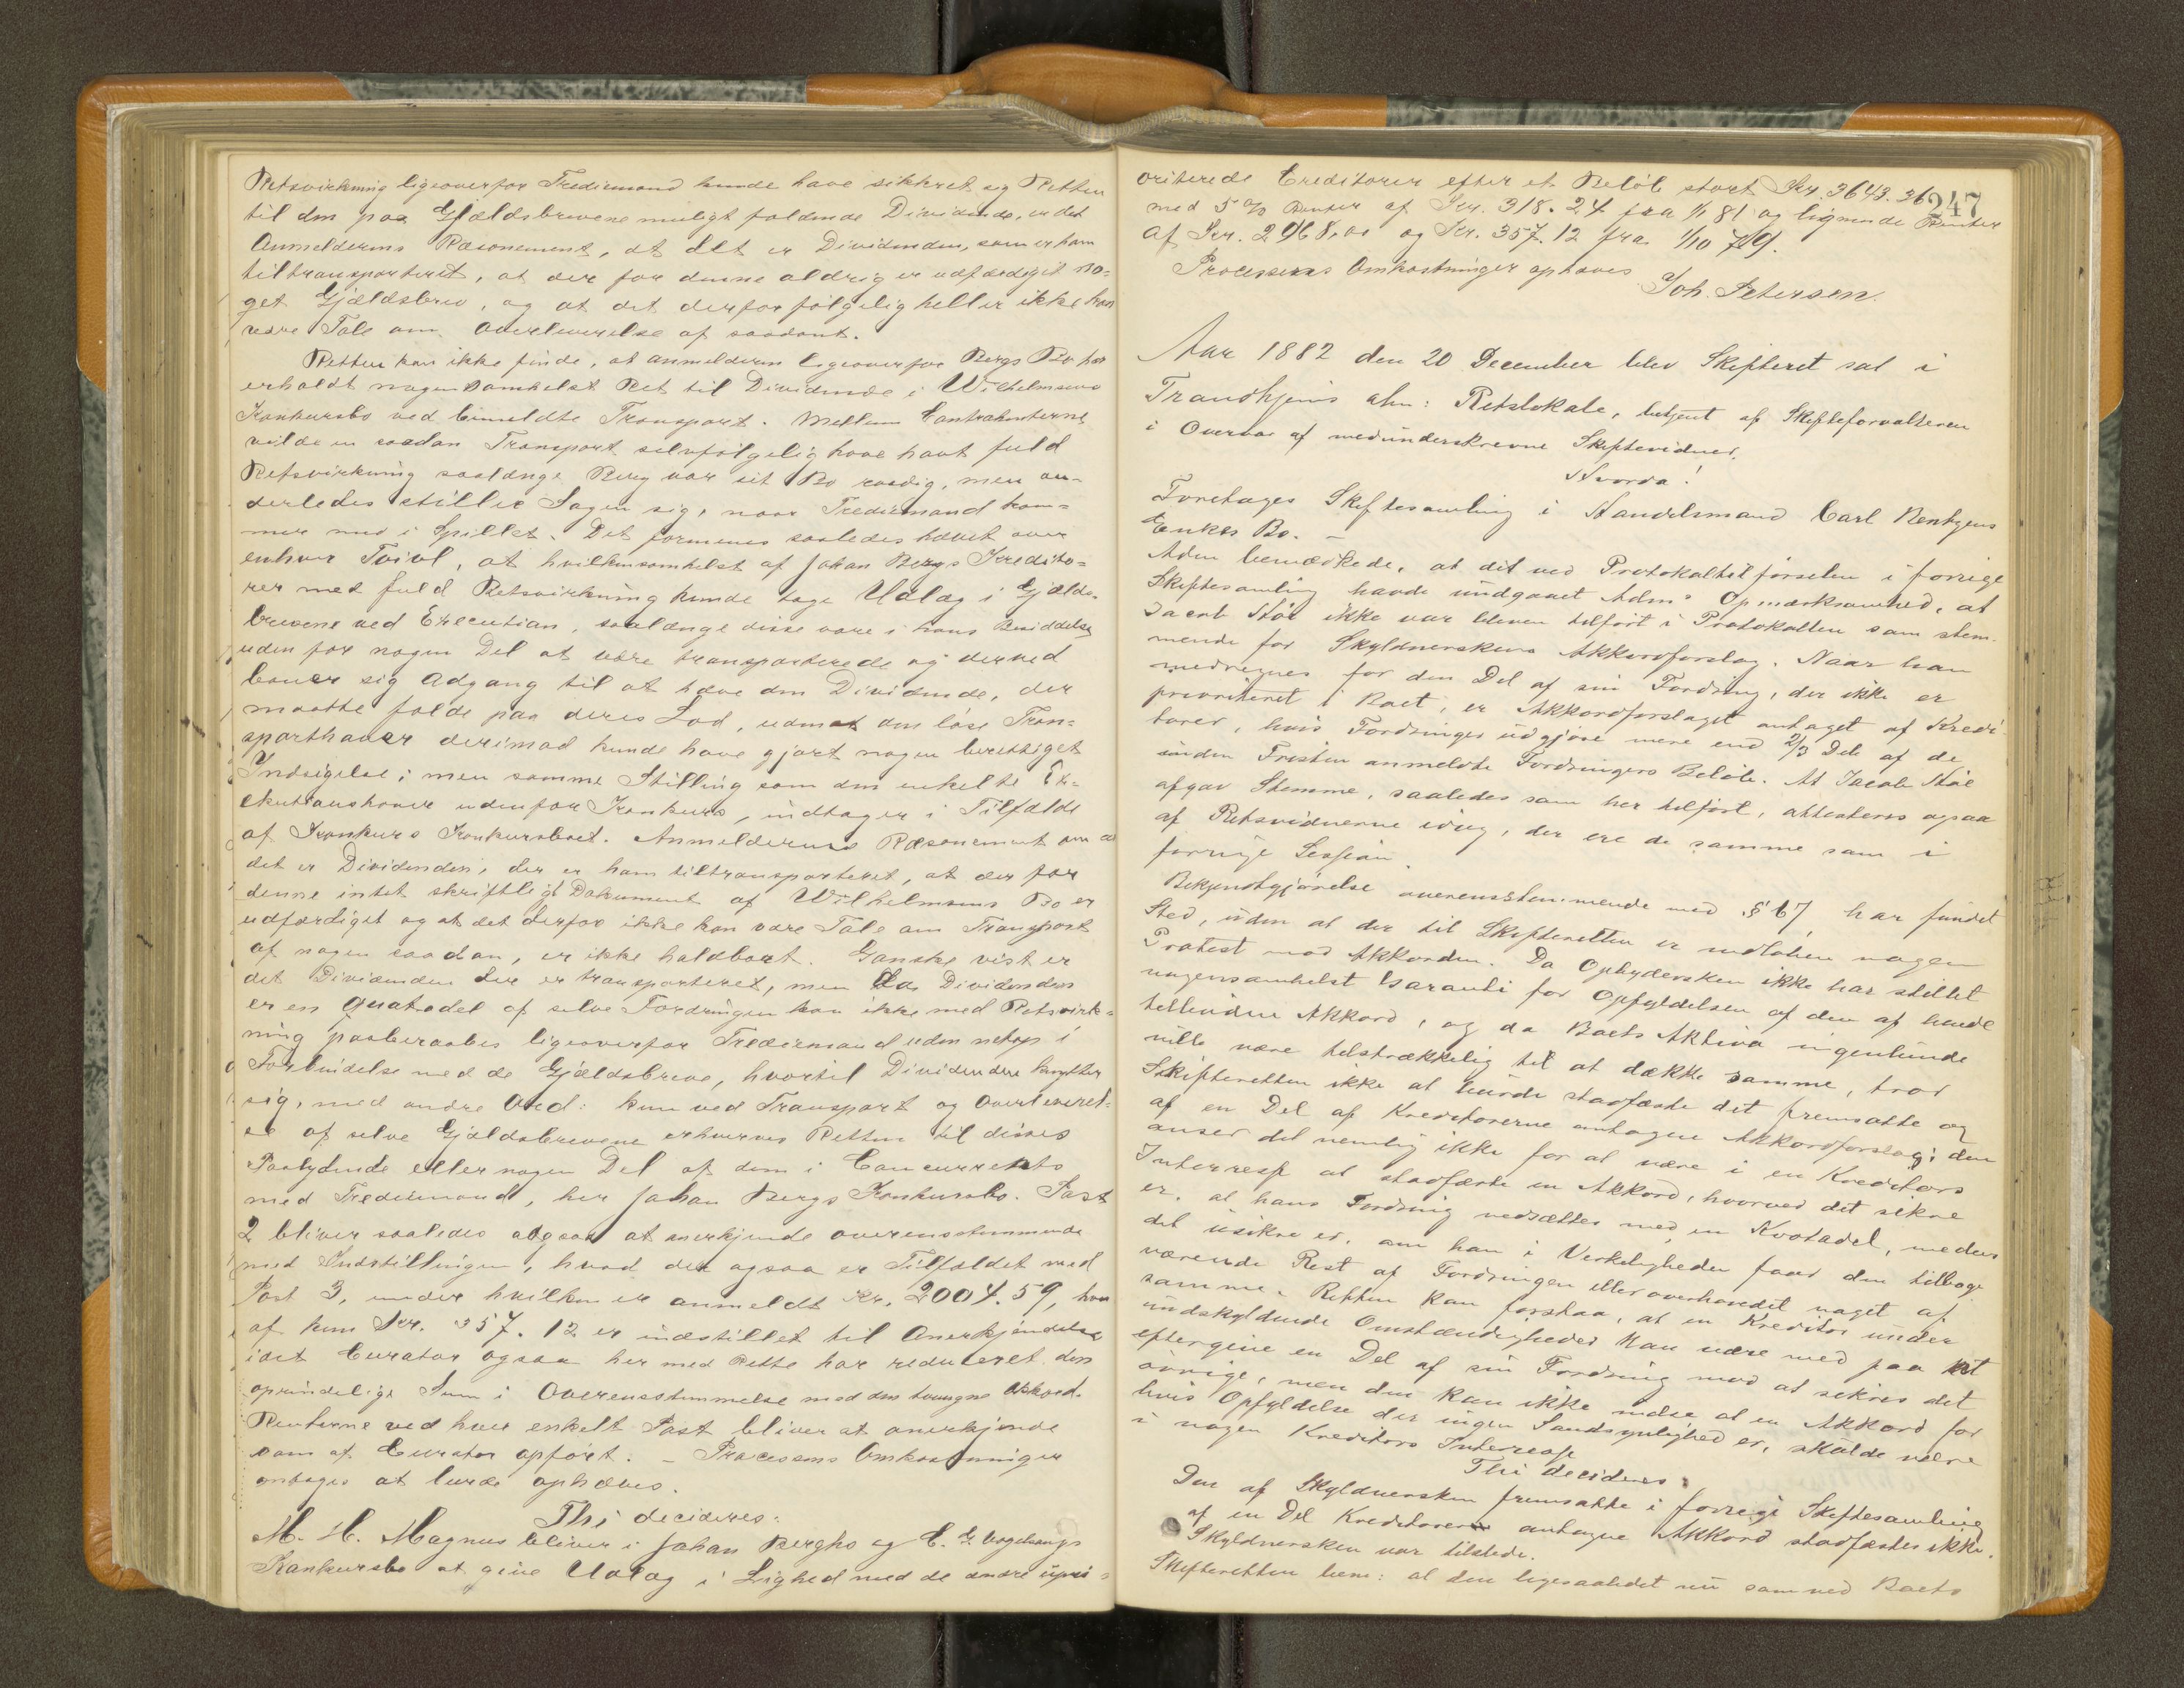 Retsvirkning ligeoverfor Trediemand kunde have sikkret sig Retten
til den paa Gjældsbrevene muligt faldende Dividende, er det
Anmelderens Ræsonement, at det er Dividenden, som er ham
tiltransporteret, at der for denne aldrig er udfærdiget no=
get Gjældsbrev, og at det derfor følgelig heller ikke kan
være Tale om Overleverelse af saadant.
Retten kan ikke finde, at anmelderen ligeoverfor Bergs Bo har
erholdt nogensomhelst Ret til Dividende i Wilhelmsens
Konkursbo ved bemeldte Transport. Mellem Contrahenterne
vilde en saadan Transport selvfølgelig have havt fuld
Retsvirkning saalænge Berg var sit Bo raadig, men an=
derledes stiller Sagen sig, naar Trediemand kom=
mer med i Spillet. Det formenes saaledes hævet over
enhver Tvivl, at hvilkensomhelst af Johan Bergs Kredito=
rer med fuld Retsvirkning kunde tage Udlæg i Gjælds=
brevene ved Execution, saalænge disse vare i hans Besiddelse
uden for nogen Del at være transporterede og derved
bane sig Adgang til at hæve den Dividende, der
maatte falde paa deres Lod, uden at den løse Tran=
sporthaver derimod kunde have gjort nogen berettiget
Indsigelse; men samme Stilling som den enkelte Ex=
ekutionshaver udenfor Konkurs, indtager i Tilfælde
af Konkurs Konkursboet. Anmelderens Ræsonement om at
det er Dividenden, der er ham tiltransporteret, at der for
denne intet skriftligt Dokument af Wilhelmsens Bo er
udfærdiget og at det derfor ikke kan være Tale om Transport
af nogen saadan, er ikke holdbart. Ganske vist er
det Dividenden der er transporteret, men da Dividenden
er en Quotadel af selve Fordringen kan ikke med Retsvirk=
ning paaberaabes ligeoverfor Trediemand uden netop i
Forbindelse med de Gjældsbreve, hvortil Dividenden knytter
sig, med andre Ord: kun ved Transport og Overleverel=
se af selve Gjældsbrevene erhverves Retten til disses
Paalydende eller nogen Del af dem i Concurrents
med Trediemand, her Johan Bergs Konkursbo. Post
2 bliver saaledes ogsaa at anerkjende overensstemmende
med Indstillingen, hvad der ogsaa er Tilfældet med
Post 3, under hvilken er anmeldt Kr. 2004.59, hvor
af kun Kr. 357.12 er indstillet til Anerkjendelse
idet Curator ogsaa her med Rette har reduceret den
oprindelige Sum i Overensstemmelse med den tvungne Akkord.
Renterne ved hver enkelt Post bliver at anerkjende
som af Curator opført. – Processens Omkostninger
antages at burde ophæves.
Thi decideres:
M. H. Magnus bliver i Johan Bergs og C. G. Vogelsangs
Konkursbo at give Udlæg i Lighed med de andre upri=
247
oriterede Creditorer efter et Beløb stort Kr. 3643.36
med 5 % Renter af Kr. 318.24 fra 1/1 81 og lignende Renter
af Kr. 2968,00 og Kr. 357.12 fra 1/10 79.
Processens Omkostninger ophæves
Joh. Petersen.
Aar 1882 den 20 December blev Skifteret sat i
Trondhjems alm: Retslokale, betjent af Skifteforvalteren
i Overvær af medunderskrevne Skiftevidner.
Hvorda!
Foretages Skiftesamling i Handelsmand Carl Rentzens
Enkes Bo. –
Adm bemærkede, at det ved Protokoltilførselen i forrige
Skiftesamling havde undgaaet Adm's Opmærksomhed, at
Jacob Stöe ikke var bleven tilført i Protokollen som stem=
mende for Skyldnerskens Akkordforslag. Naar han
medregnes for den Del af sin Fordring, der ikke er
prioriteret i Boet, er Akkordforslaget antaget af Kredi
torer, hvis Fordringer udgjøre mere end 2/3 Dele af de
inden Fristen anmeldte Fordringers Beløb. At Jacob Stöe
afgav Stemme, saaledes som her tilført, attesteres ogsaa
af Retsvidnerne idag, der ere de samme som i
forrige Session.
Bekjendtgjørelse overensstemmende med § 67, har fundet
Sted, uden at der til Skifteretten er indløben nogen
Protest mod Akkorden. Da Opbydersken ikke har stillet
nogensomhelst Garanti for Opfyldelsen af den af hende
tilbudne Akkord, og da Boets Aktiva ingenlunde
ville være tilstrækkelig til at dække samme, tror
Skifteretten ikke at burde stadfæste det fremsatte og
af en Del af Kreditorerne antagne Akkordforslag; den
anser det nemlig ikke for at være i en Kreditors
Interesse at stadfæste en Akkord, hvorved det sikre
er, at hans Fordring nedsættes med en Kvotadel, medens
det usikre er, om han i Virkeligheden faar den tilbage
værende Rest af Fordringen eller overhovedet noget af
samme. Retten kan forstaa, at en Kreditor under
undskyldende Omstændigheder kan være med paa at
eftergive en Del af sin Fordring mod at sikres det
øvrige, men den kan ikke indse at en Akkord for
hvis Opfyldelse der ingen Sandsynlighed er, skulde være
i nogen Kreditors Interesse
Thi decideres:
Den af Skyldnersken fremsatte i forrige Skiftesamling
af en Del Kreditorer antagne Akkord stadfæstes ikke.
Skyldnersken var tilstede.
Skifteretten bem: at den ligesaalidet nu som ved Boets